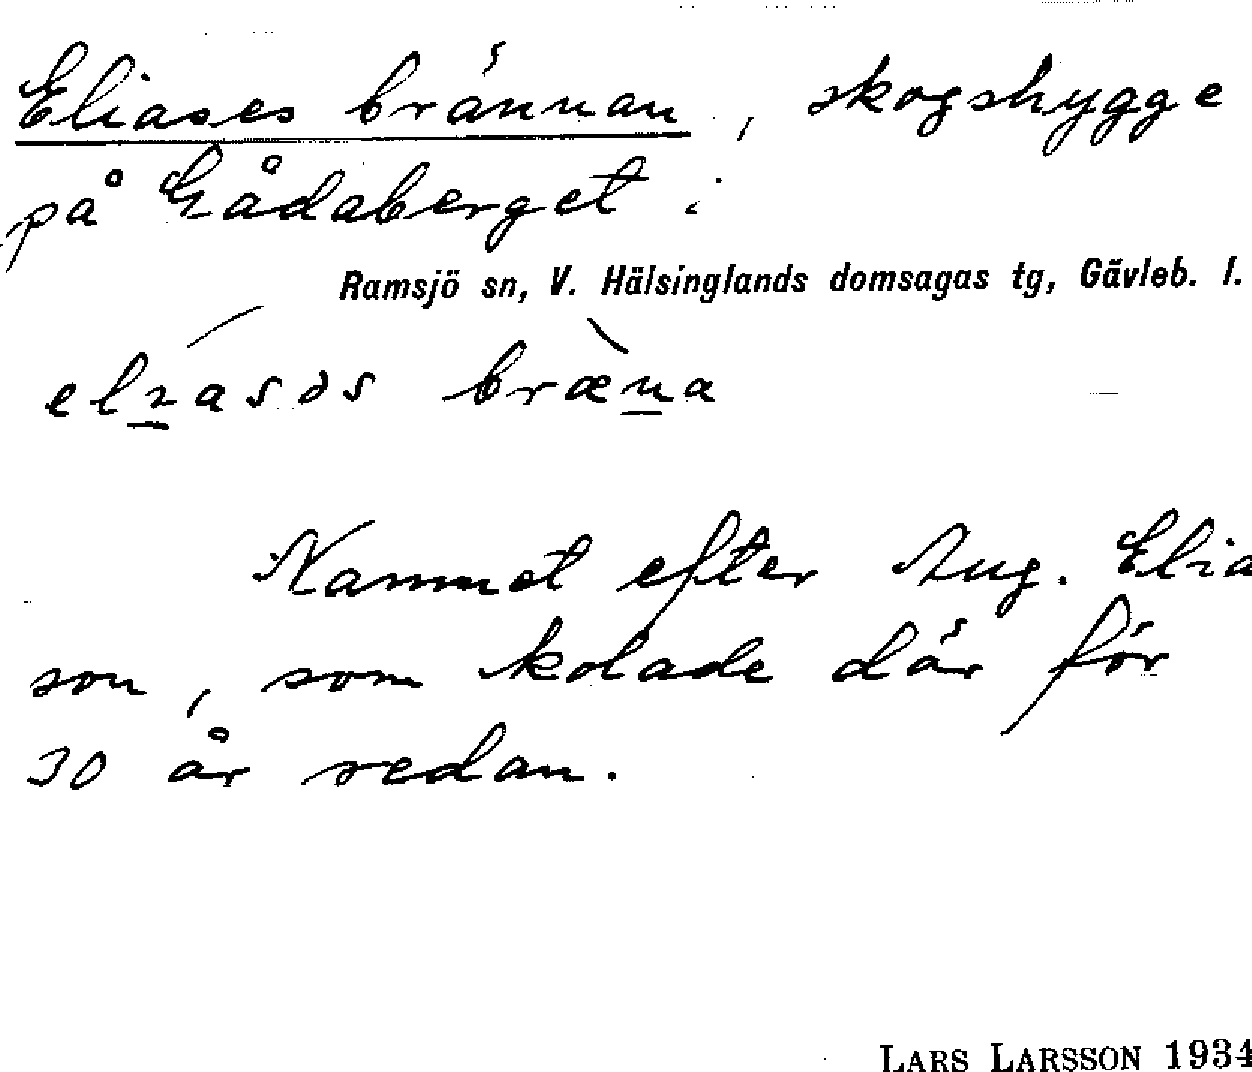 Eliases brännan, skogshygge
på Gådaberget i
Ramsjö sn, V. Hälsinglands domsagas tg, Gävleb. l.
elıasəs bræna
Namnet efter Aug. Elia
son, som kolade där för
30 år sedan.
LARS LARSSON 1934